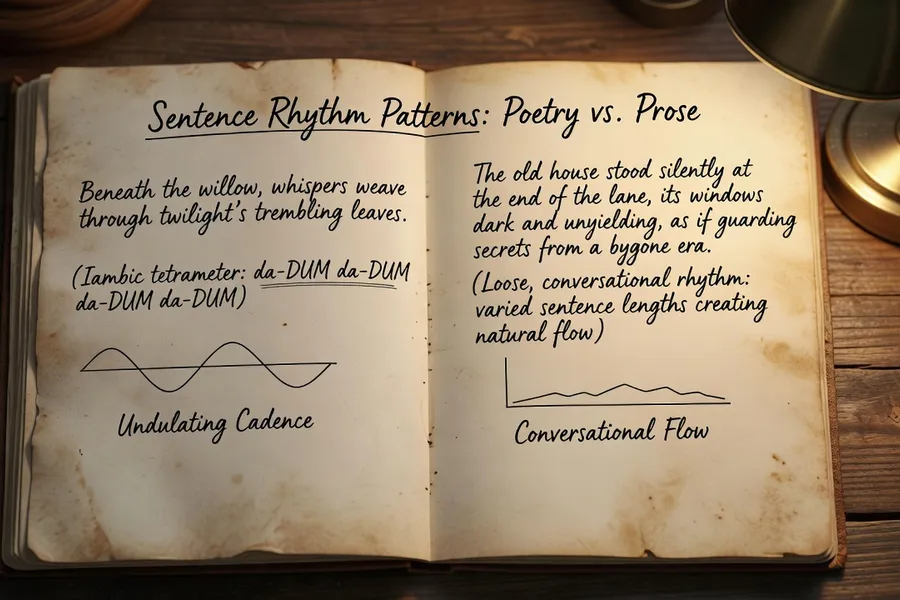 Sentence Rhythm Patterns: Poetry vs. Prose
Beneath the willow, whispers weave
through twilight's trembling leaves.
(Iambic tetrameter: da-DUM da-DUM
da-DUM da-DUM)
Undulating Cadence
The old house stood silently at
the end of the lane, its windows
dark and unyielding, as if guarding
secrets from a bygone era.
(Loose, conversational rhythm:
varied sentence lengths creating
natural flow)
Conversational Flow